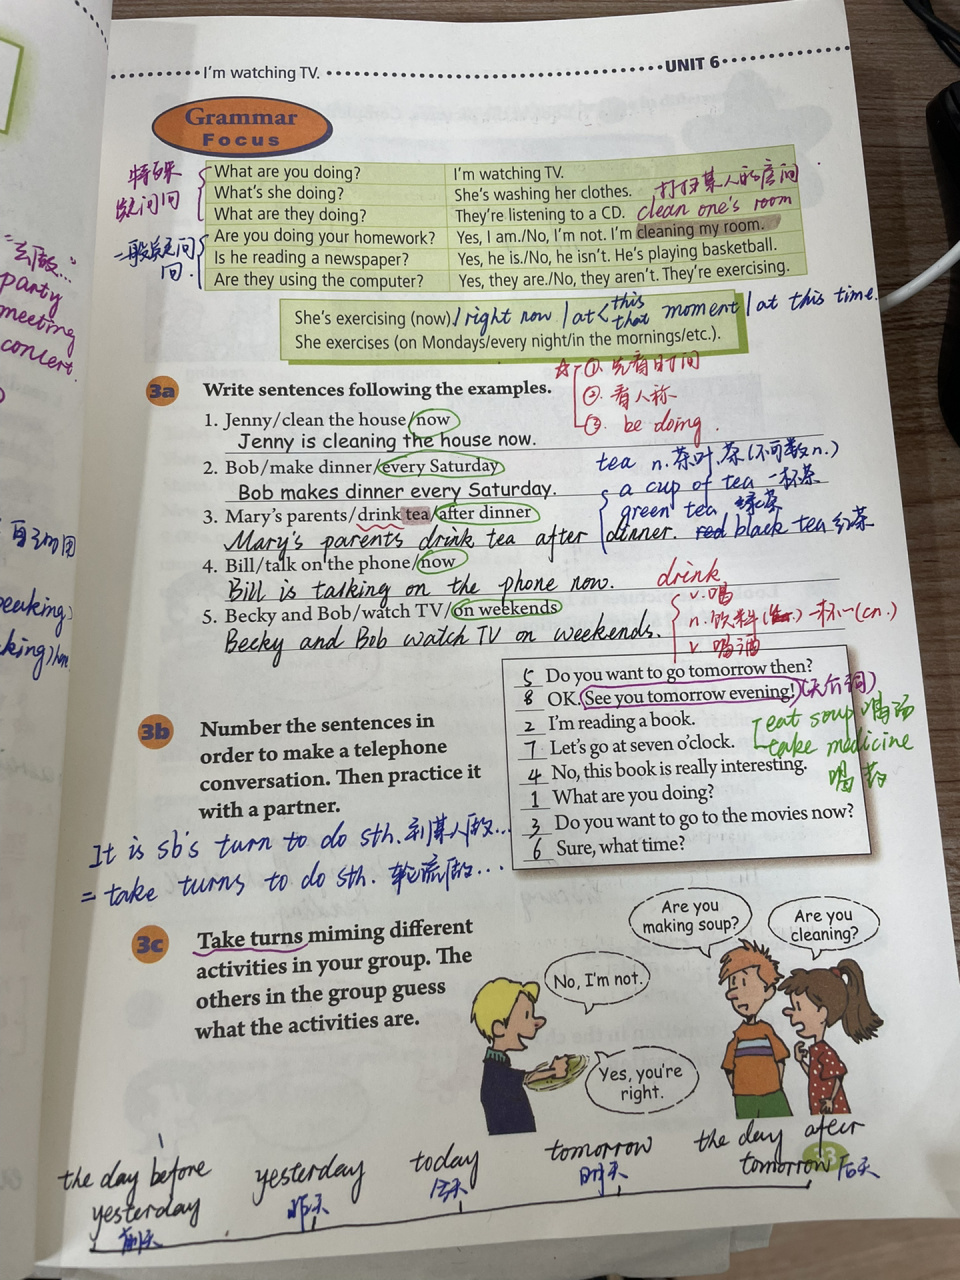 I'm watching TV.
UNIT 6
Grammar
Focus
特殊
疑问句
What are you doing?
I'm watching TV.
What's she doing?
She's washing her clothes.
打扫某人的房间
What are they doing?
They're listening to a CD.
clean one's room
一般疑问
句.
Are you doing your homework?
Yes, I am./No, I'm not. I'm cleaning my room.
Is he reading a newspaper?
Yes, he is./No, he isn't. He's playing basketball.
Are they using the computer?
Yes, they are./No, they aren't. They're exercising.
"去做..."
party
meeting
concert.
She's exercising (now)./right now / at < this that moment / at this time.
She exercises (on Mondays/every night/in the mornings/etc.).
☆ ①. 先看时间
②. 看人称
③. be doing.
3a
Write sentences following the examples.
1. Jenny/clean the house/now
Jenny is cleaning the house now.
2. Bob/make dinner/every Saturday
Bob makes dinner every Saturday.
tea n. 茶叶.茶(不可数n.)
a cup of tea 一杯茶
green tea 绿茶
red black tea 红茶
3. Mary's parents/drink tea/after dinner
Mary's parents drink tea after dinner.
4. Bill/talk on the phone/now
Bill is talking on the phone now.
5. Becky and Bob/watch TV/on weekends
Becky and Bob watch TV on weekends.
drink
v. 喝
n. 饮料 一杯~(cn.)
v. 喝酒
eaking)
king)
3b
Number the sentences in
order to make a telephone
conversation. Then practice it
with a partner.
5 Do you want to go tomorrow then?
8 OK. See you tomorrow evening! (无介词)
2 I'm reading a book.
7 Let's go at seven o'clock.
4 No, this book is really interesting.
1 What are you doing?
3 Do you want to go to the movies now?
6 Sure, what time?
eat soup 喝汤
take medicine
喝药
It is sb's turn to do sth. 到某人做...
= take turns to do sth. 轮流做...
3c
Take turns miming different
activities in your group. The
others in the group guess
what the activities are.
Are you
making soup?
Are you
cleaning?
No, I'm not.
Yes, you're
right.
the day before
yesterday
前天
yesterday
昨天
today
今天
tomorrow
明天
the day after
tomorrow 后天
33